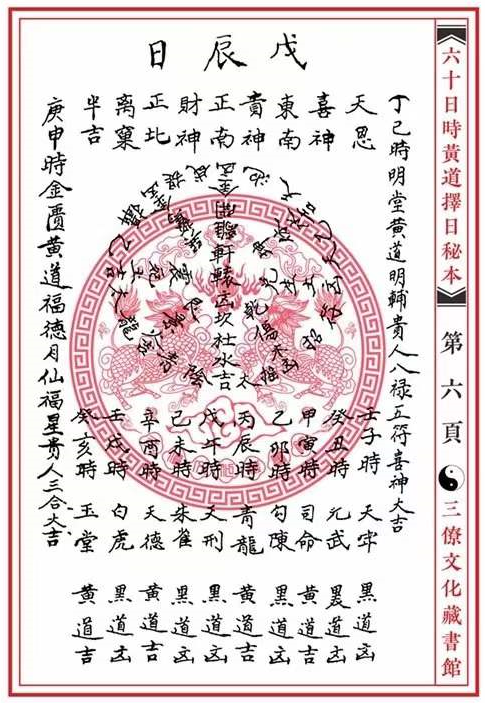 《六十日時黃道擇日秘本》
第六頁
三僚文化藏書館
戊辰日
丁巳時明堂黃道明輔貴人八祿五符喜神大吉
天恩
喜神
東南
貴神
正南
財神
正北
离窠
半吉
軒轅凶坎社水吉
壬子時 天牢 黑道凶
癸丑時 元武 黑道凶
甲寅時 司命 黃道吉
乙卯時 勾陳 黑道凶
丙辰時 青龍 黃道吉
戊午時 天刑 黑道凶
己未時 朱雀 黑道凶
辛酉時 天德 黃道吉
壬戌時 白虎 黑道凶
癸亥時 玉堂 黃道吉
庚申時金匱黃道福德月仙福星貴人三合大吉